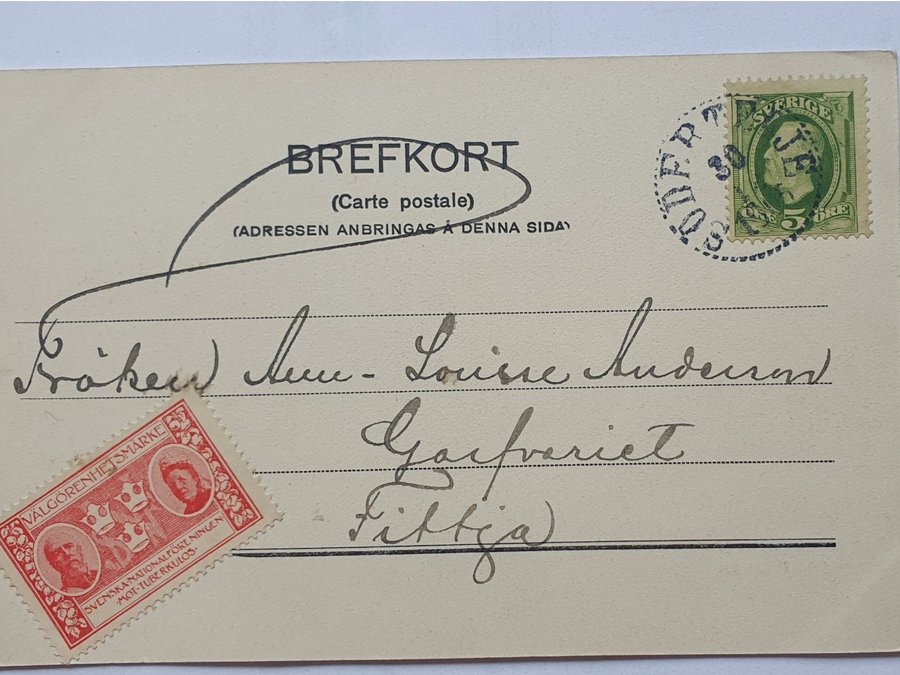 BREFKORT
(Carte postale)
(ADRESSEN ANBRINGAS Å DENNA SIDA)
SVERIGE
5 ÖRE
SÖDERTELJE
30
Fröken Ann-Louisse Anderson
Garfveriet
Fittja
VÄLGÖRENHETSMÄRKE
SVENSKA NATIONALFÖRENINGEN
MOT TUBERKULOS